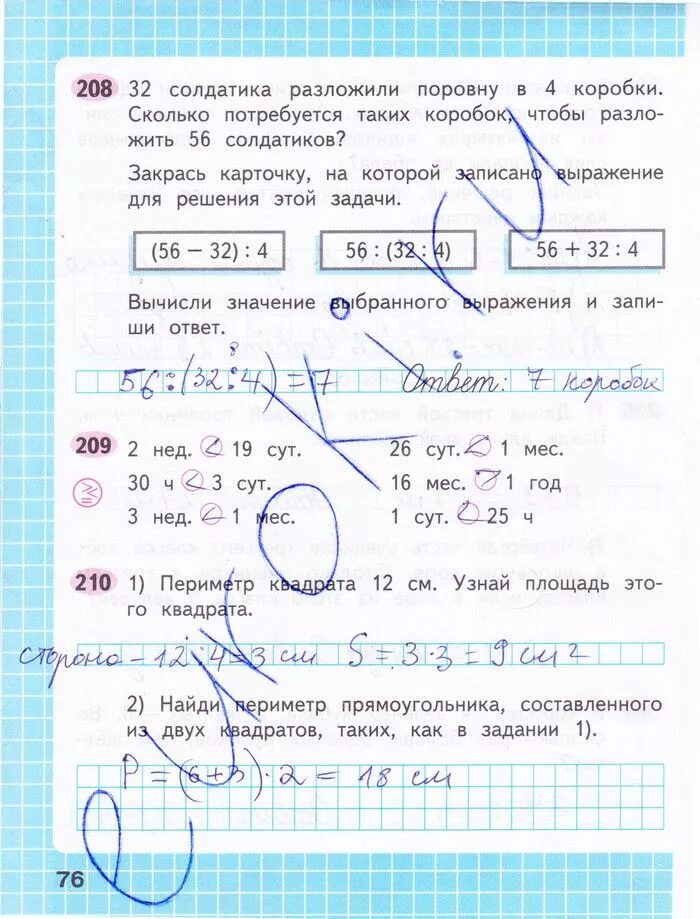 208 32 солдатика разложили поровну в 4 коробки.
Сколько потребуется таких коробок, чтобы разло-
жить 56 солдатиков?
Закрась карточку, на которой записано выражение
для решения этой задачи.
(56 − 32) : 4 56 : (32 : 4) 56 + 32 : 4
Вычисли значение выбранного выражения и запи-
ши ответ.
8
56 : (32 : 4) = 7 Ответ: 7 коробок
209 2 нед. < 19 сут. 26 сут. < 1 мес.
30 ч < 3 сут. 16 мес. > 1 год
3 нед. < 1 мес. 1 сут. < 25 ч
210 1) Периметр квадрата 12 см. Узнай площадь это-
го квадрата.
сторона – 12 : 4 = 3 см S = 3 · 3 = 9 см 2
2) Найди периметр прямоугольника, составленного
из двух квадратов, таких, как в задании 1).
P = (6 + 3) · 2 = 18 см
76